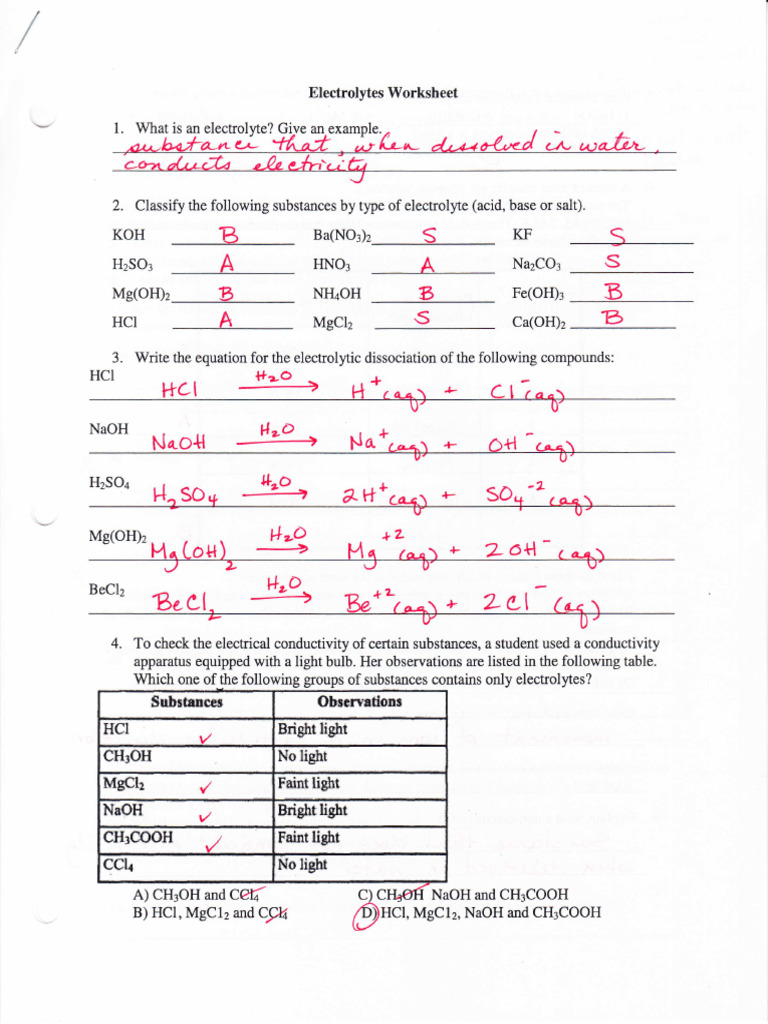 Electrolytes Worksheet
1. What is an electrolyte? Give an example.
substance that, when dissolved in water,
conducts electricity
2. Classify the following substances by type of electrolyte (acid, base or salt).
KOH B Ba(NO₃)₂ S KF S
H₂SO₃ A HNO₃ A Na₂CO₃ S
Mg(OH)₂ B NH₄OH B Fe(OH)₃ B
HCl A MgCl₂ S Ca(OH)₂ B
3. Write the equation for the electrolytic dissociation of the following compounds:
HCl
HCl H₂O → H⁺(aq) + Cl⁻(aq)
NaOH
NaOH H₂O → Na⁺(aq) + OH⁻(aq)
H₂SO₄
H₂SO₄ H₂O → 2H⁺(aq) + SO₄⁻²(aq)
Mg(OH)₂
Mg(OH)₂ H₂O → Mg⁺²(aq) + 2OH⁻(aq)
BeCl₂
BeCl₂ H₂O → Be⁺²(aq) + 2Cl⁻(aq)
4. To check the electrical conductivity of certain substances, a student used a conductivity
apparatus equipped with a light bulb. Her observations are listed in the following table.
Which one of the following groups of substances contains only electrolytes?
Substances Observations
HCl ✓ Bright light
CH₃OH No light
MgCl₂ ✓ Faint light
NaOH ✓ Bright light
CH₃COOH ✓ Faint light
CCl₄ No light
A) CH₃OH and CCl₄ C) CH₃OH NaOH and CH₃COOH
B) HCl, MgCl₂ and CCl₄ D) HCl, MgCl₂, NaOH and CH₃COOH